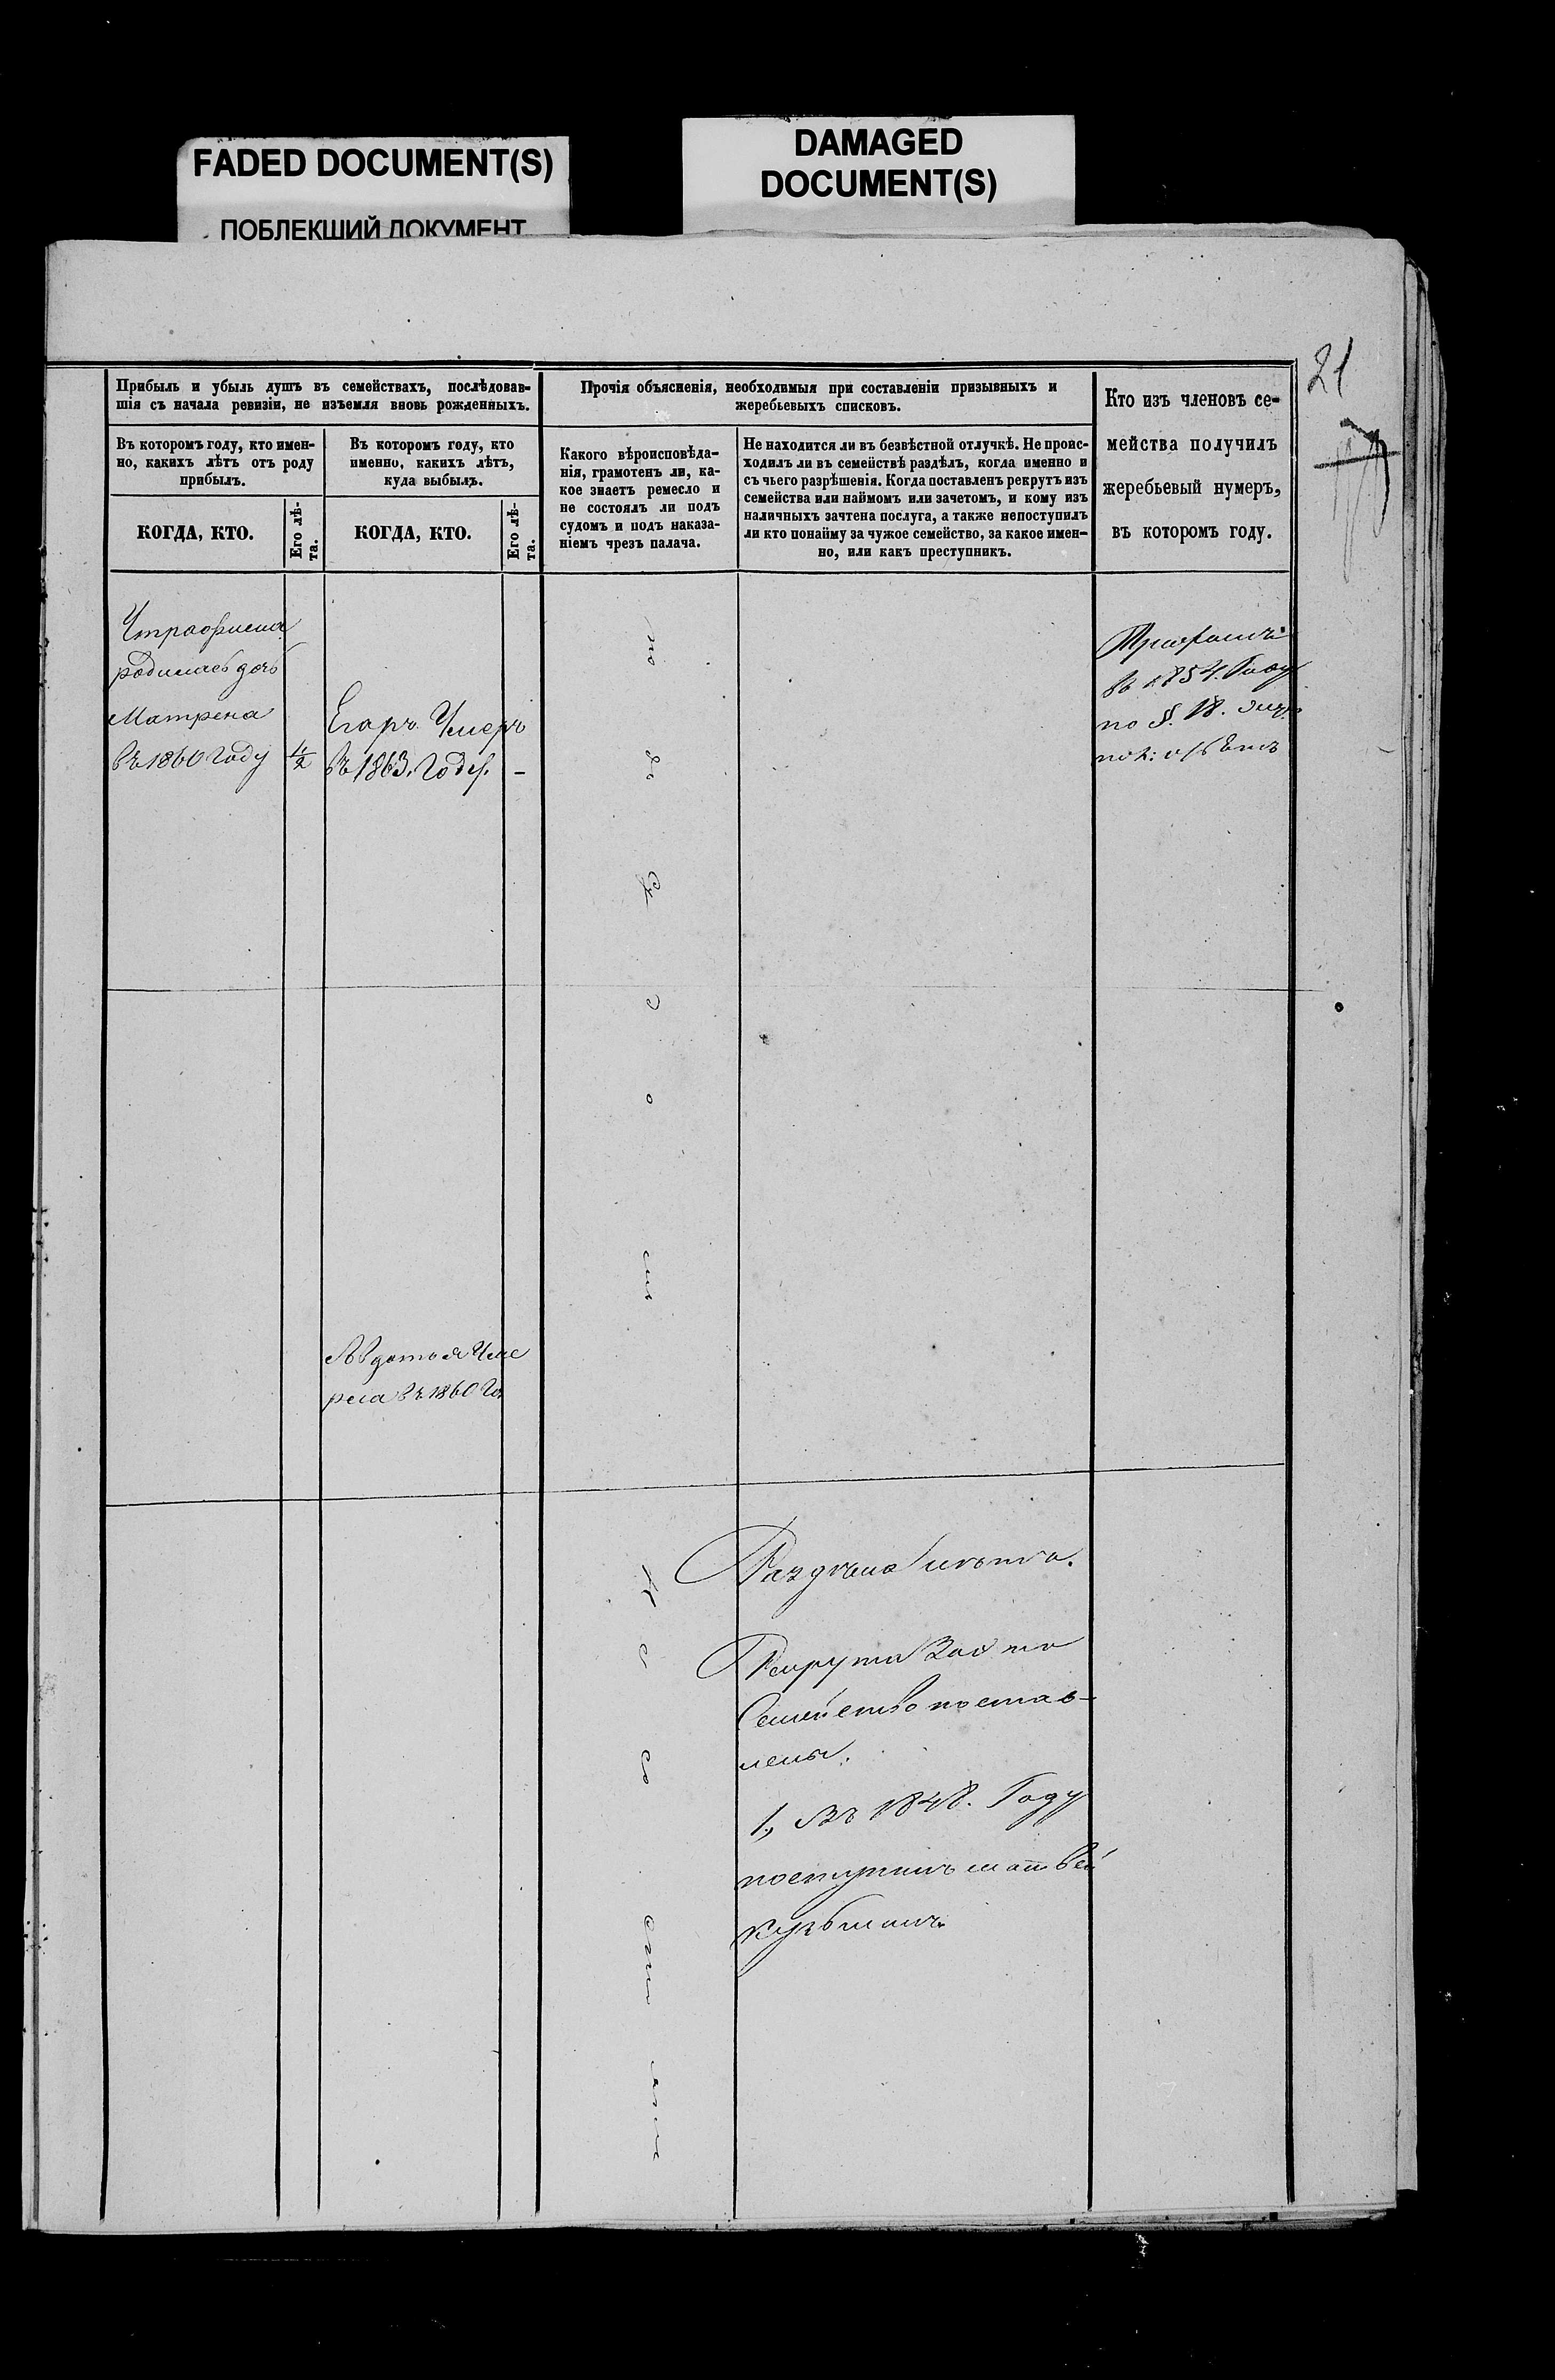 FADED DOCUMENT(S)
ПОБЛЕКШИЙ ДОКУМЕНТ
DAMAGED
DOCUMENT(S)
21
Прибыль и убыль душъ въ семействахъ, послѣдовав-
шія съ начала ревизіи, не изъемля вновь рожденныхъ.
Въ которомъ году, кто имен-
но, какихъ лѣтъ отъ роду
прибылъ.
КОГДА, КТО.
Его лѣ-
та.
Въ которомъ году, кто
именно, какихъ лѣтъ,
куда выбылъ.
КОГДА, КТО.
Его лѣ-
та.
Прочія объясненія, необходимыя при составленіи призывныхъ и
жеребьевыхъ списковъ.
Какого вѣроисповѣда-
нія, грамотенъ ли, ка-
кое знаетъ ремесло и
не состоялъ ли подъ
судомъ и подъ наказа-
ніемъ чрезъ палача.
Не находится ли въ безвѣстной отлучкѣ. Не проис-
ходилъ ли въ семействѣ раздѣлъ, когда именно и
съ чьего разрѣшенія. Когда поставленъ рекрутъ изъ
семейства или наймомъ или зачетомъ, и кому изъ
наличныхъ зачтена послуга, а также непоступилъ
ли кто понайму за чужое семейство, за какое имен-
но, или какъ преступникъ.
Кто изъ членовъ се-
мейства получилъ
жеребьевый нумеръ,
въ которомъ году.
родилась дочь
Матрена
въ 1860 году
Егоръ Умеръ
въ 1863. Году.
-
въ 1854. Году
по §. 18.
Авдотья Уме
рела въ 1860 го
Рекрута
Семейство постав-
лены.
1, Въ 1848. Году
поступилъ матвей
Кузьминъ